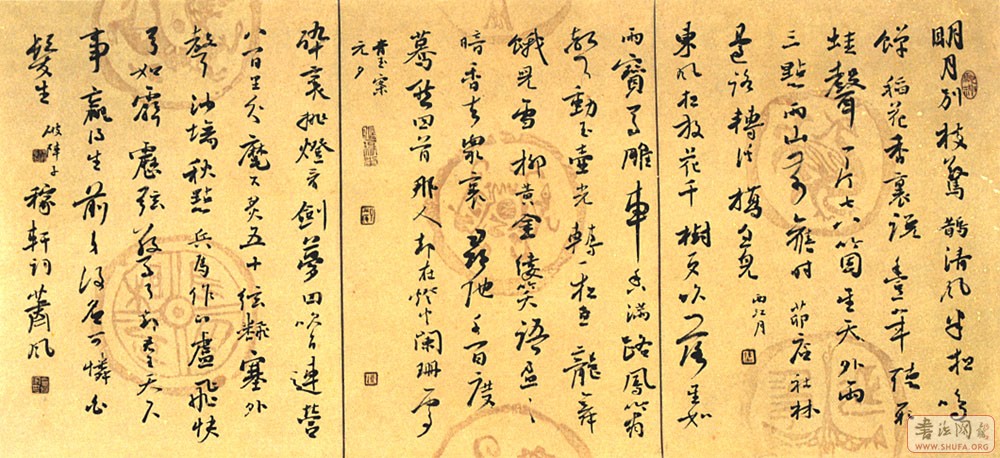 明月别枝驚鵲清風半夜鳴
蟬稻花香裏説豐年聽取
蛙聲一片七八箇星天外兩
三點雨山前舊時茆店社林
邊路轉溪橋忽見
西江月
東風夜放花千樹更吹落星如
雨寶馬雕車香滿路鳳簫
聲動玉壺光轉一夜魚龍舞
蛾兒雪柳黄金縷笑語盈〻
暗香去衆裏尋他千百度
驀然回首那人却在燈火闌珊處
青玉案
元夕
醉裏挑燈看劍夢回吹角連營
八百里分麾下炙五十弦翻塞外
聲沙場秋點兵馬作的盧飛快
弓如霹靂弦驚了却君王天下
事贏得生前身後名可憐白
髮生
破陣子
稼軒詞
蕭風
書法网
WWW.SHUFA.ORG